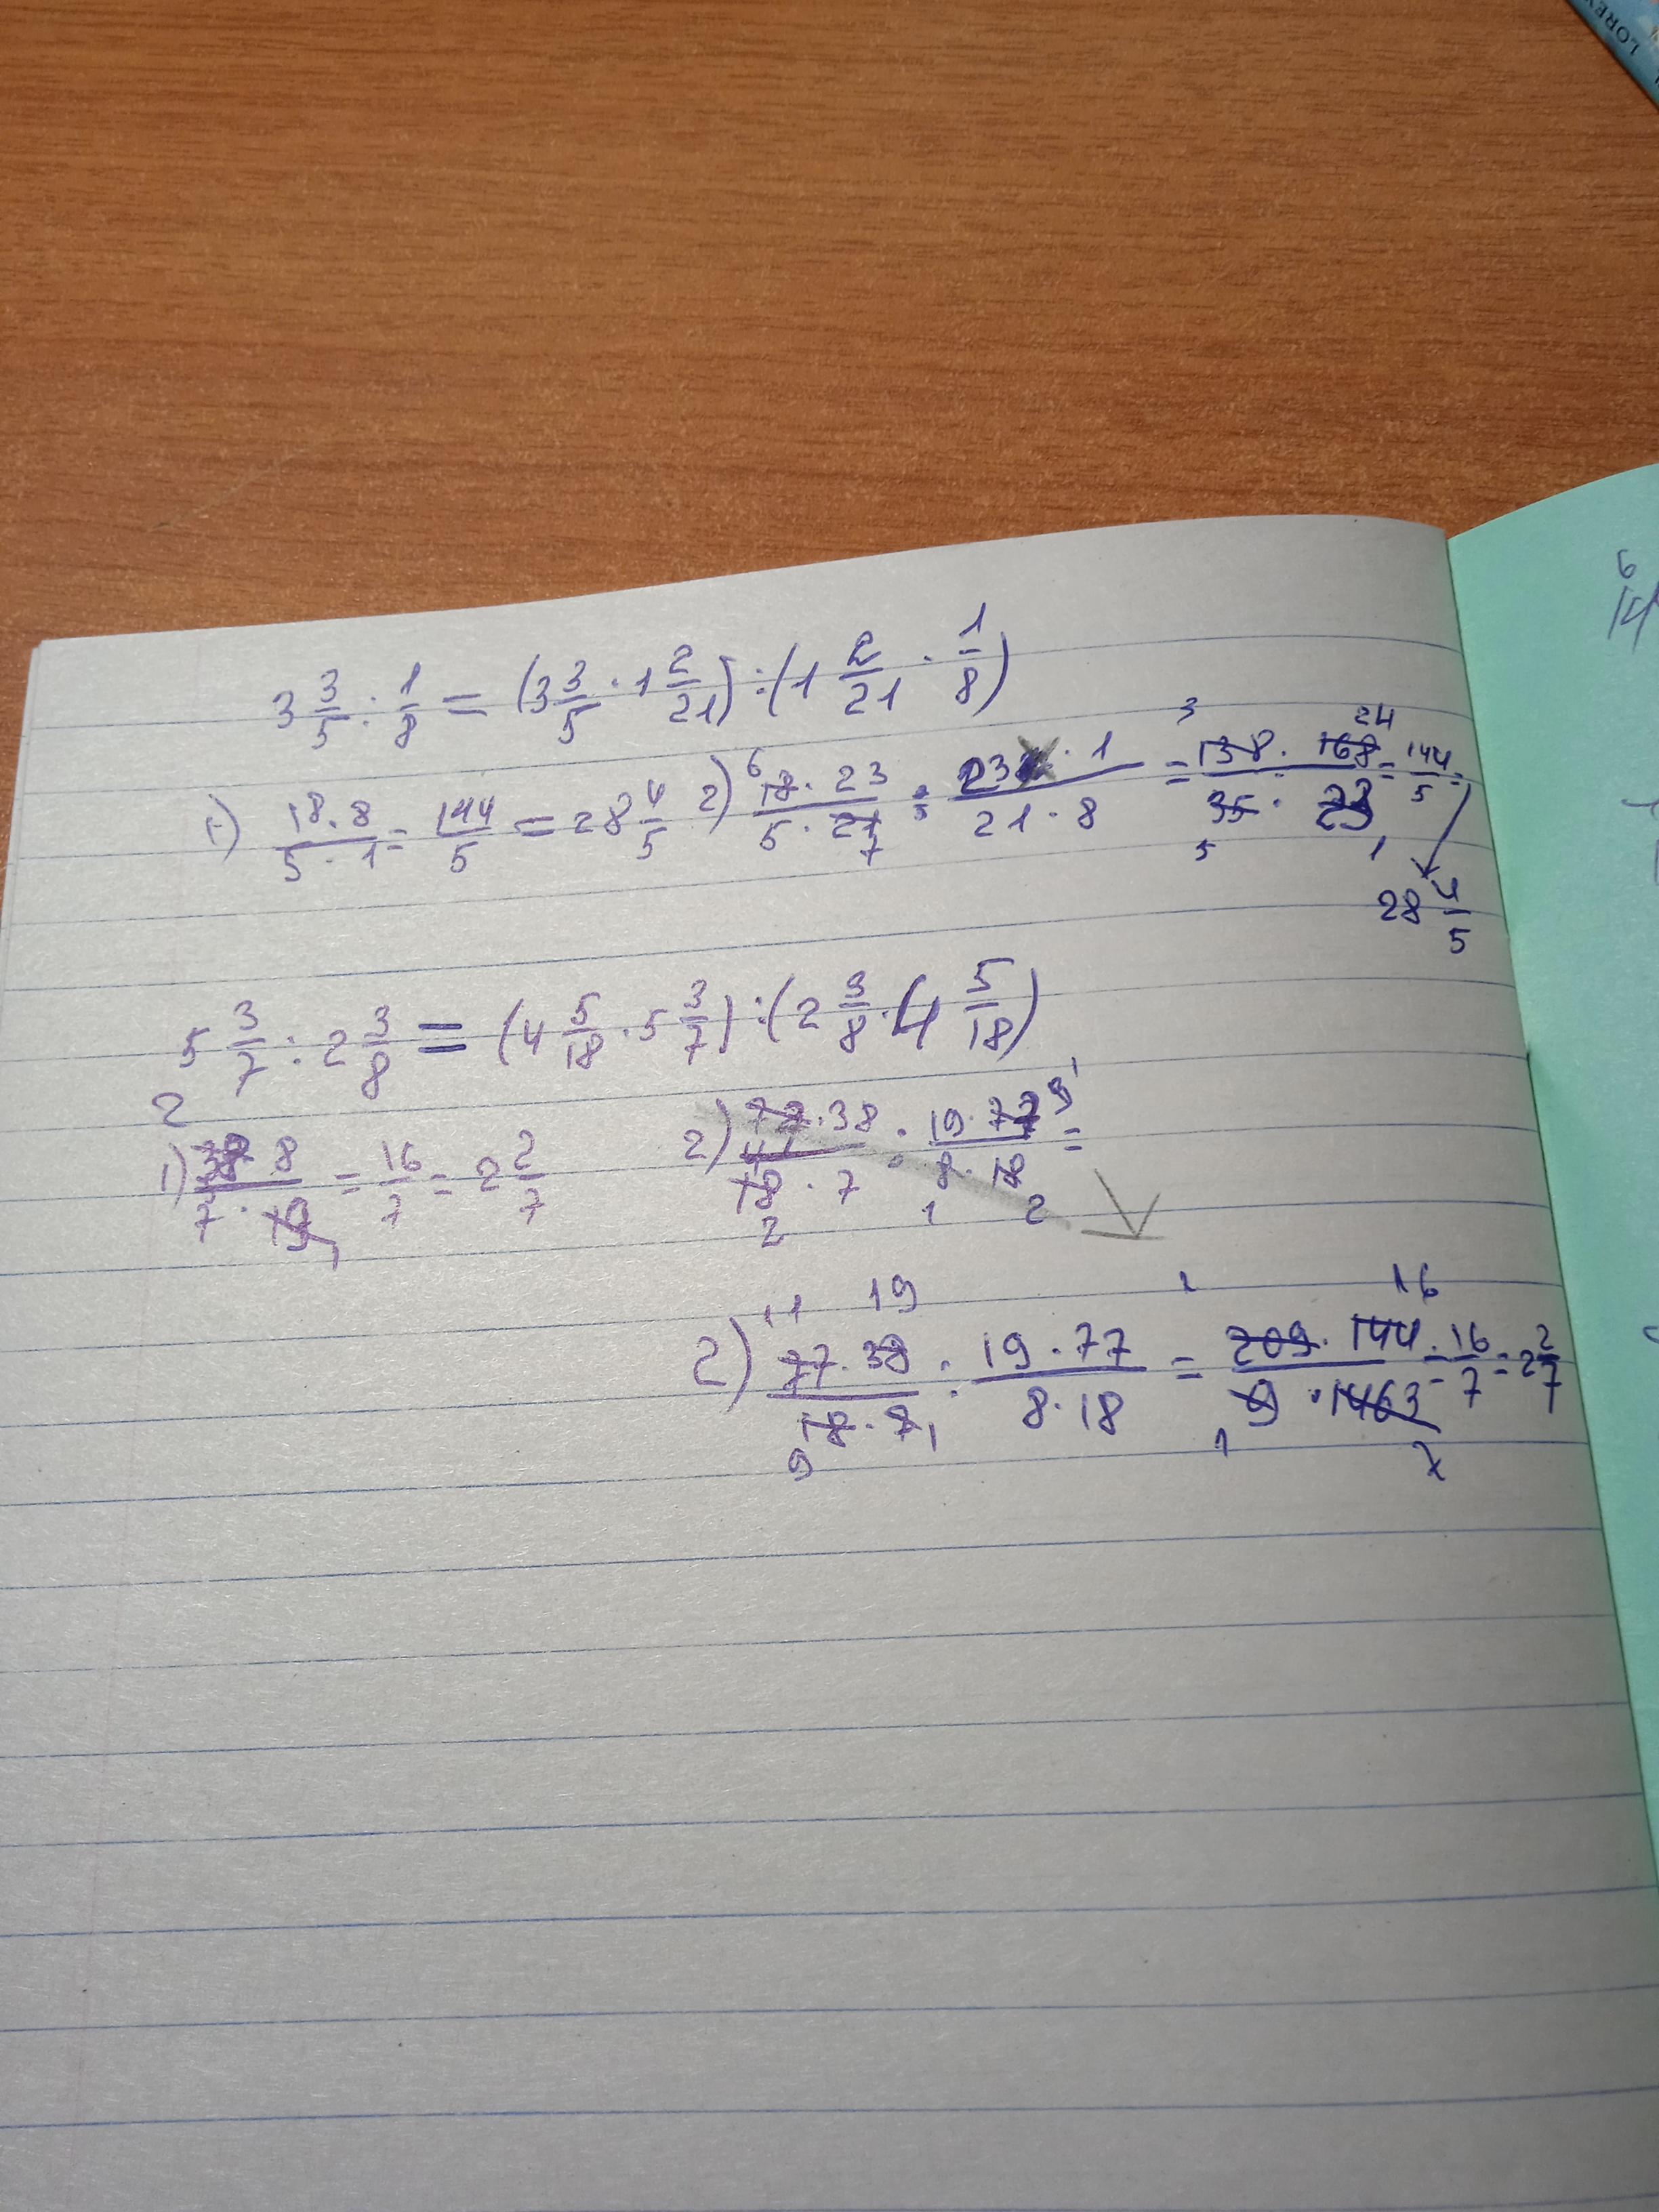 LOREY
3 3/5 : 1/8 = (3 3/5 · 1 2/21) : (1 2/21 · 1/8)
1) 18·8/5·1 = 144/5 = 28 4/5 2) 6 18·23/5·21 7 : 23·1/21·8 = 3 138·168 24/35·23 5 1 = 144/5 =
28 4/5
5 3/7 : 2 3/8 = (4 5/18 · 5 3/7) : (2 3/8 · 4 5/18)
1) 2 38·8/7·19 1 = 16/7 = 2 2/7 2) 77·38/18·7 2 : 19·77/8·18 1 2 =
2) 11 19 77·38/18·7 9 1 : 19·77/8·18 = 1 16 209·144/9·1463 1 7 = 16/7 = 2 2/7
6
14